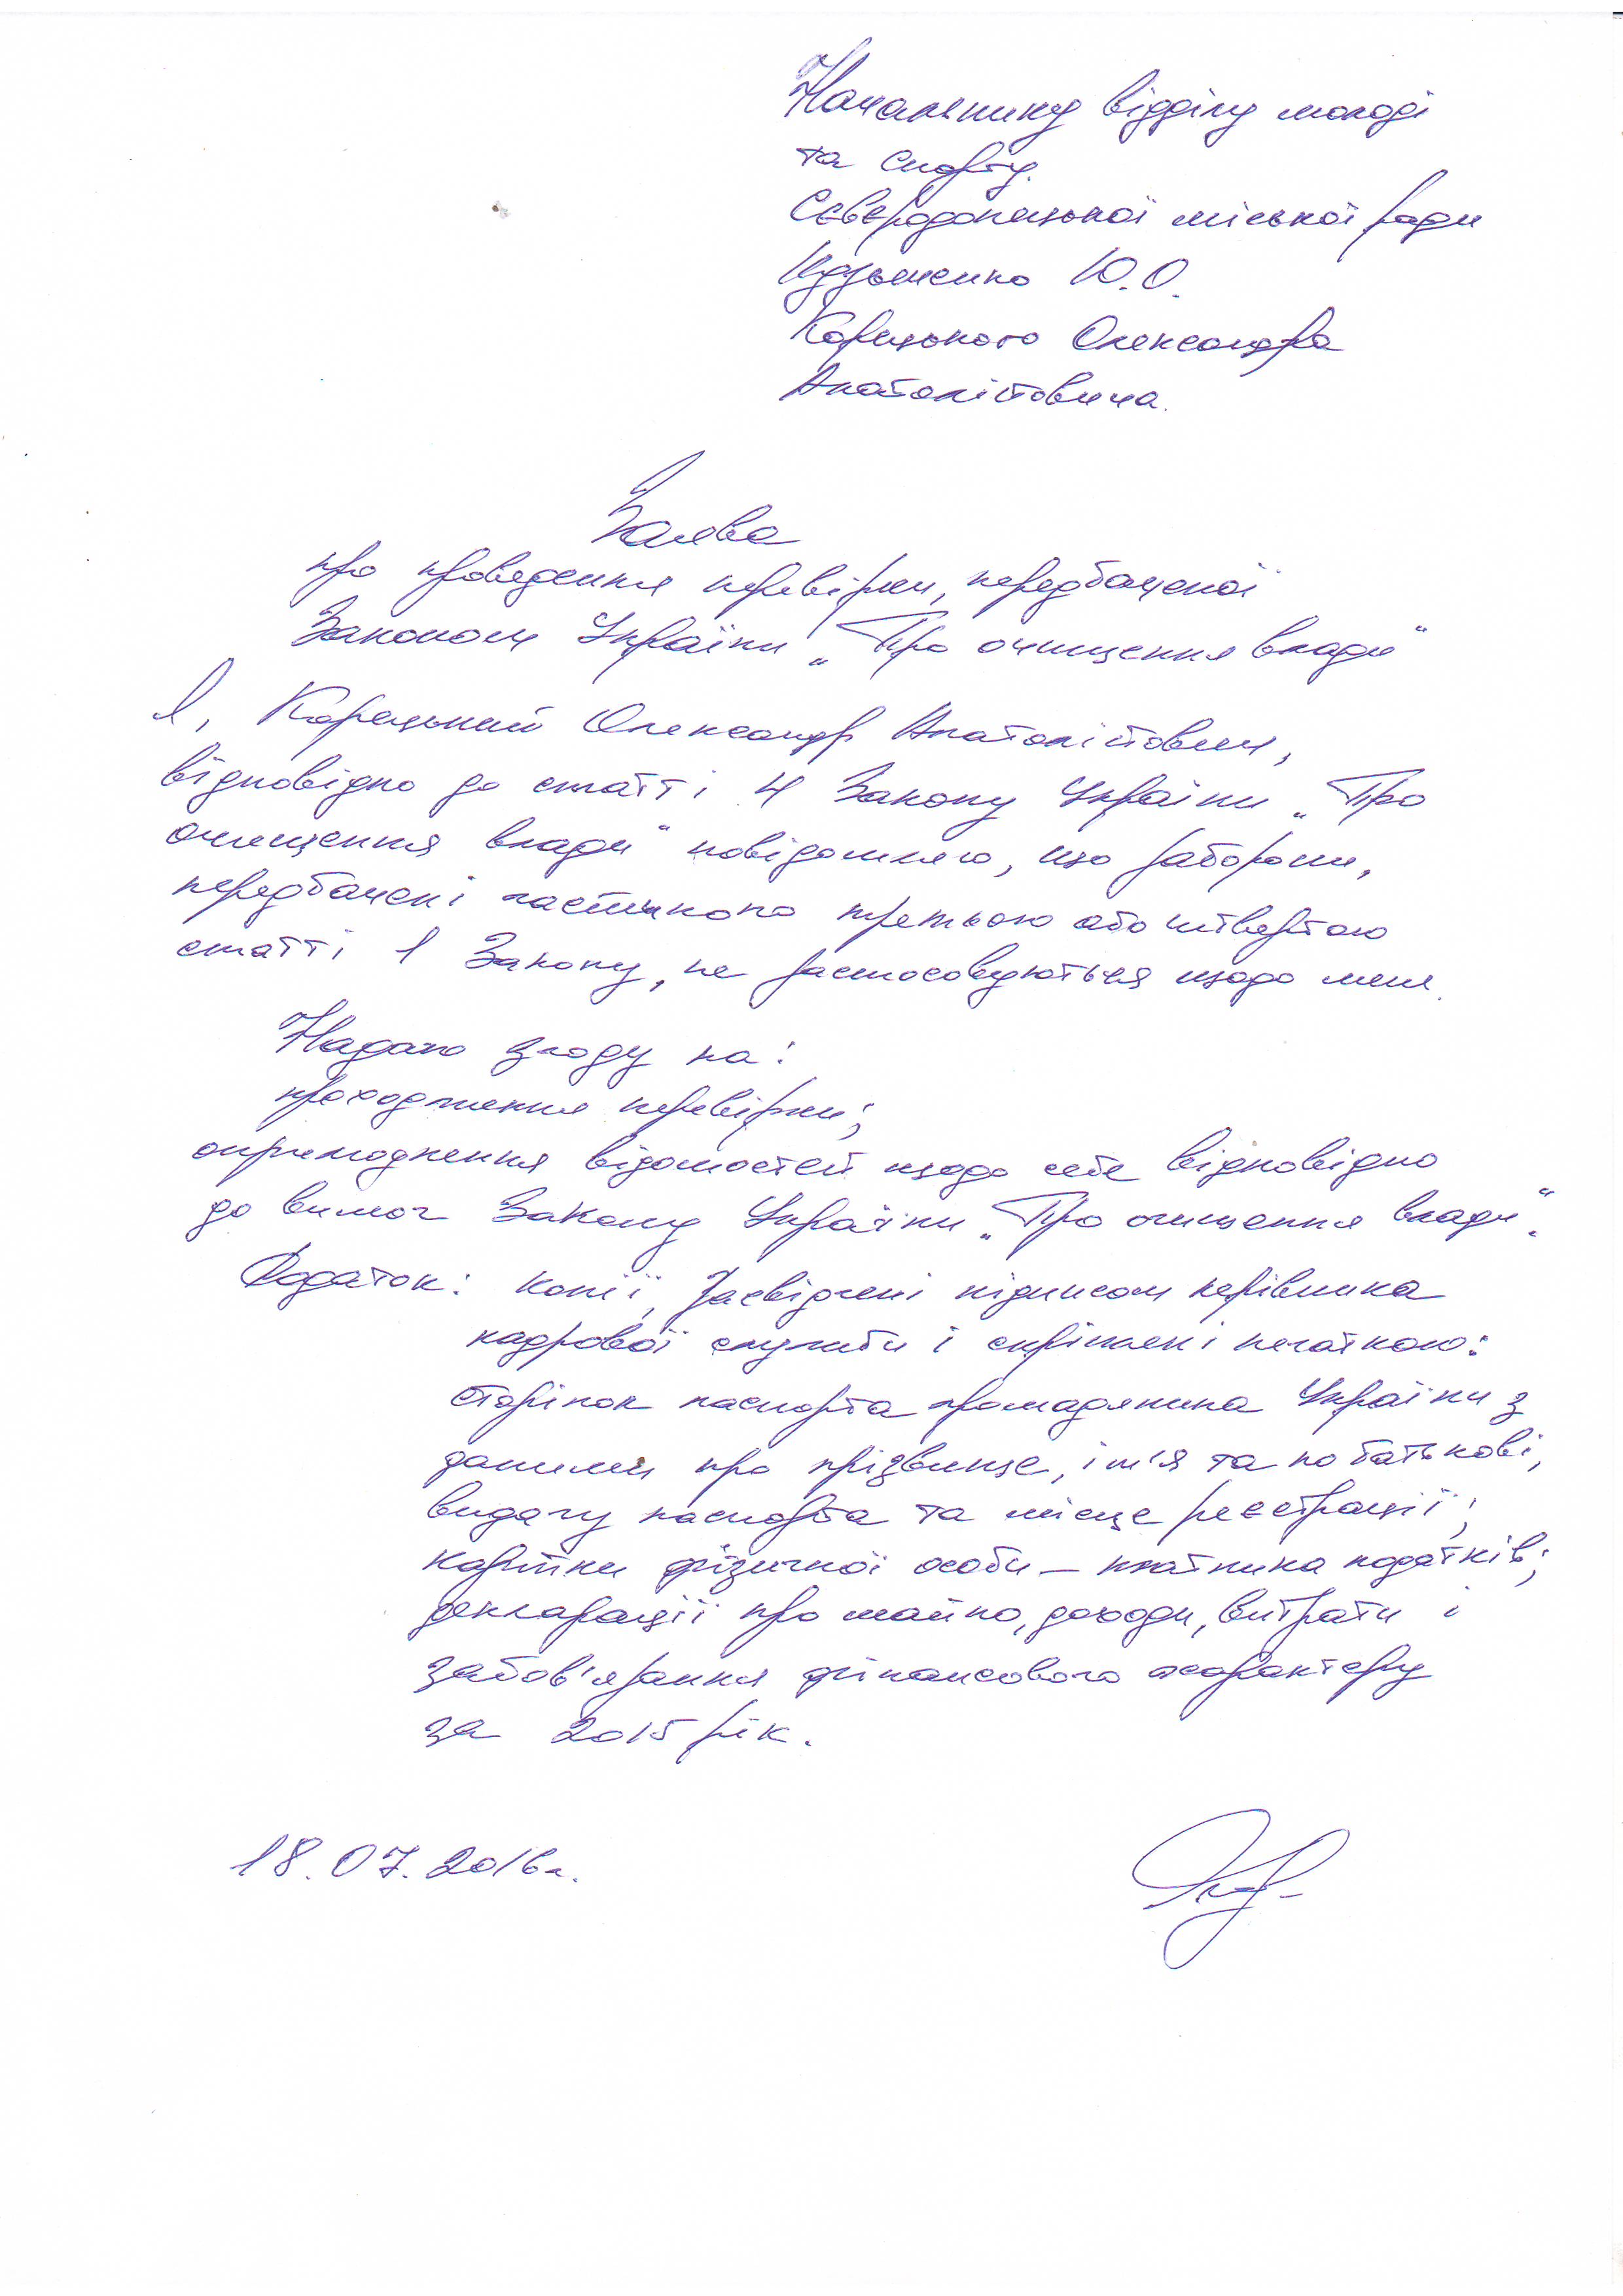 Начальнику відділу молоді
та спорту
Сєвєродонецької міської ради
Кузьменко Ю.О.
Корецького Олександра
Анатолійовича.
Заява
про проведення перевірки, передбаченої
Законом України „Про очищення влади“
Я, Корецький Олександр Анатолійович,
відповідно до статті 4 Закону України „Про
очищення влади“ повідомляю, що заборони,
передбачені частиною третьою або четвертою
статті 1 Закону, не застосовуються щодо мене.
Надаю згоду на:
проходження перевірки;
оприлюднення відомостей щодо себе відповідно
до вимог Закону України „Про очищення влади“.
Додаток: копії, засвідчені підписом керівника
кадрової служби і скріплені печаткою:
сторінок паспорта громадянина України з
даними про прізвище, ім'я та по батькові,
видачу паспорта та місце реєстрації;
картки фізичної особи – платника податків;
декларації про майно, доходи, витрати і
зобов'язання фінансового характеру
за 2015 рік.
18.07.2016 г.